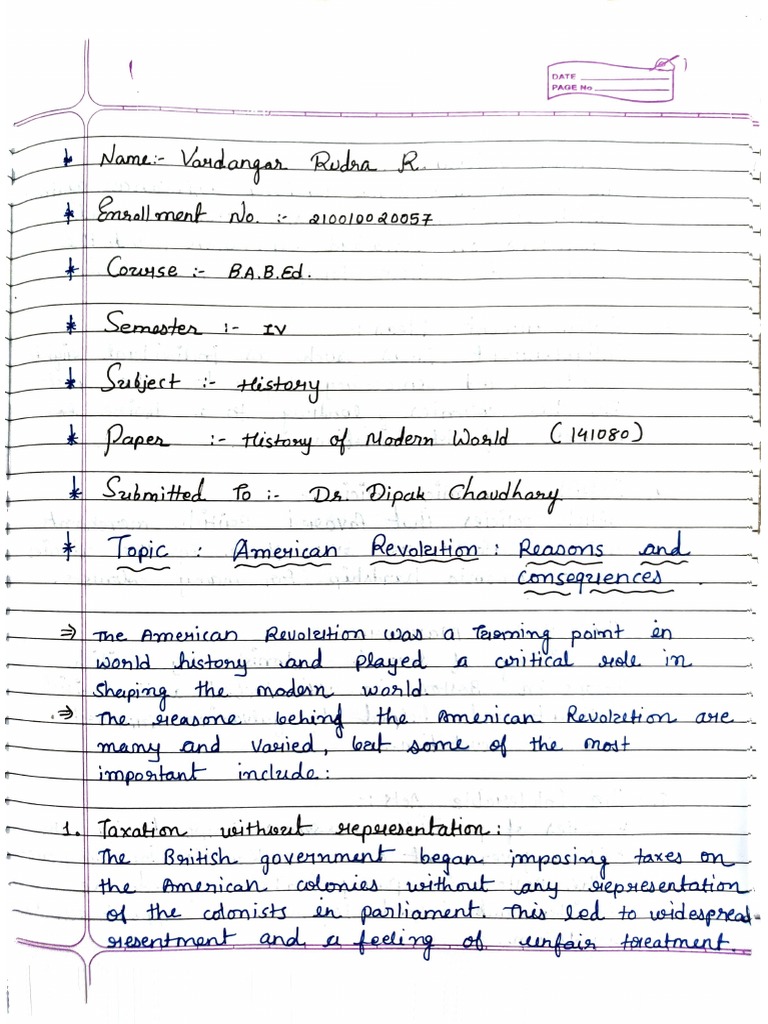 DATE
PAGE No
* Name:- Vardangar Rudra R.
* Enrollment No. :- 21001002 0057
* Course :- B.A.B.Ed.
* Semester :- IV
* Subject :- History
* Paper :- History of Modern World (141080)
* Submitted To :- Dr. Dipak Chaudhary
* Topic : American Revolution : Reasons and
consequences.
⇒ The American Revolution was a Turning point in
world history and played a critical role in
shaping the modern world.
⇒ The reasons behind the American Revolution are
many and varied, but some of the most
important include:
1. Taxation without representation:
The British government began imposing taxes on
the American colonies without any representation
of the colonists in parliament. This led to widespread
resentment and a feeling of unfair treatment.